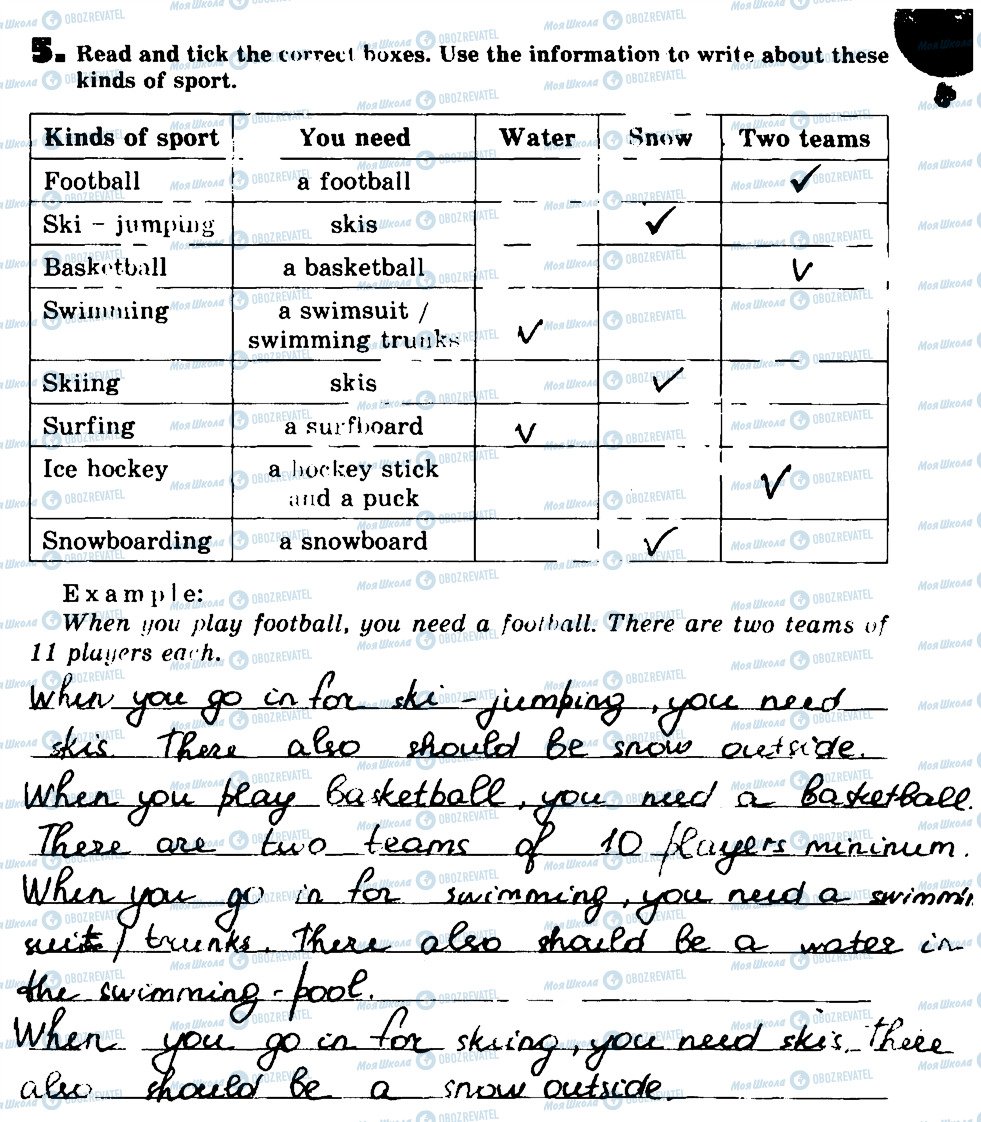 5. Read and tick the correct boxes. Use the information to write about these
kinds of sport.
Kinds of sport You need Water Snow Two teams
Football a football ✓
Ski – jumping skis ✓
Basketball a basketball ✓
Swimming a swimsuit / ✓
swimming trunks
Skiing skis ✓
Surfing a surfboard ✓
Ice hockey a hockey stick ✓
and a puck
Snowboarding a snowboard ✓
Example:
When you play football, you need a football. There are two teams of
11 players each.
When you go in for ski - jumping, you need
skis. There also should be snow outside.
When you play basketball, you need a basketball.
There are two teams of 10 players mininum.
When you go in for swimming, you need a swimmin
suit / trunks. There also should be a water in
the swimming - pool.
When you go in for skiing, you need skis. There
also should be a snow outside.
МояШкола OBOZREVATEL